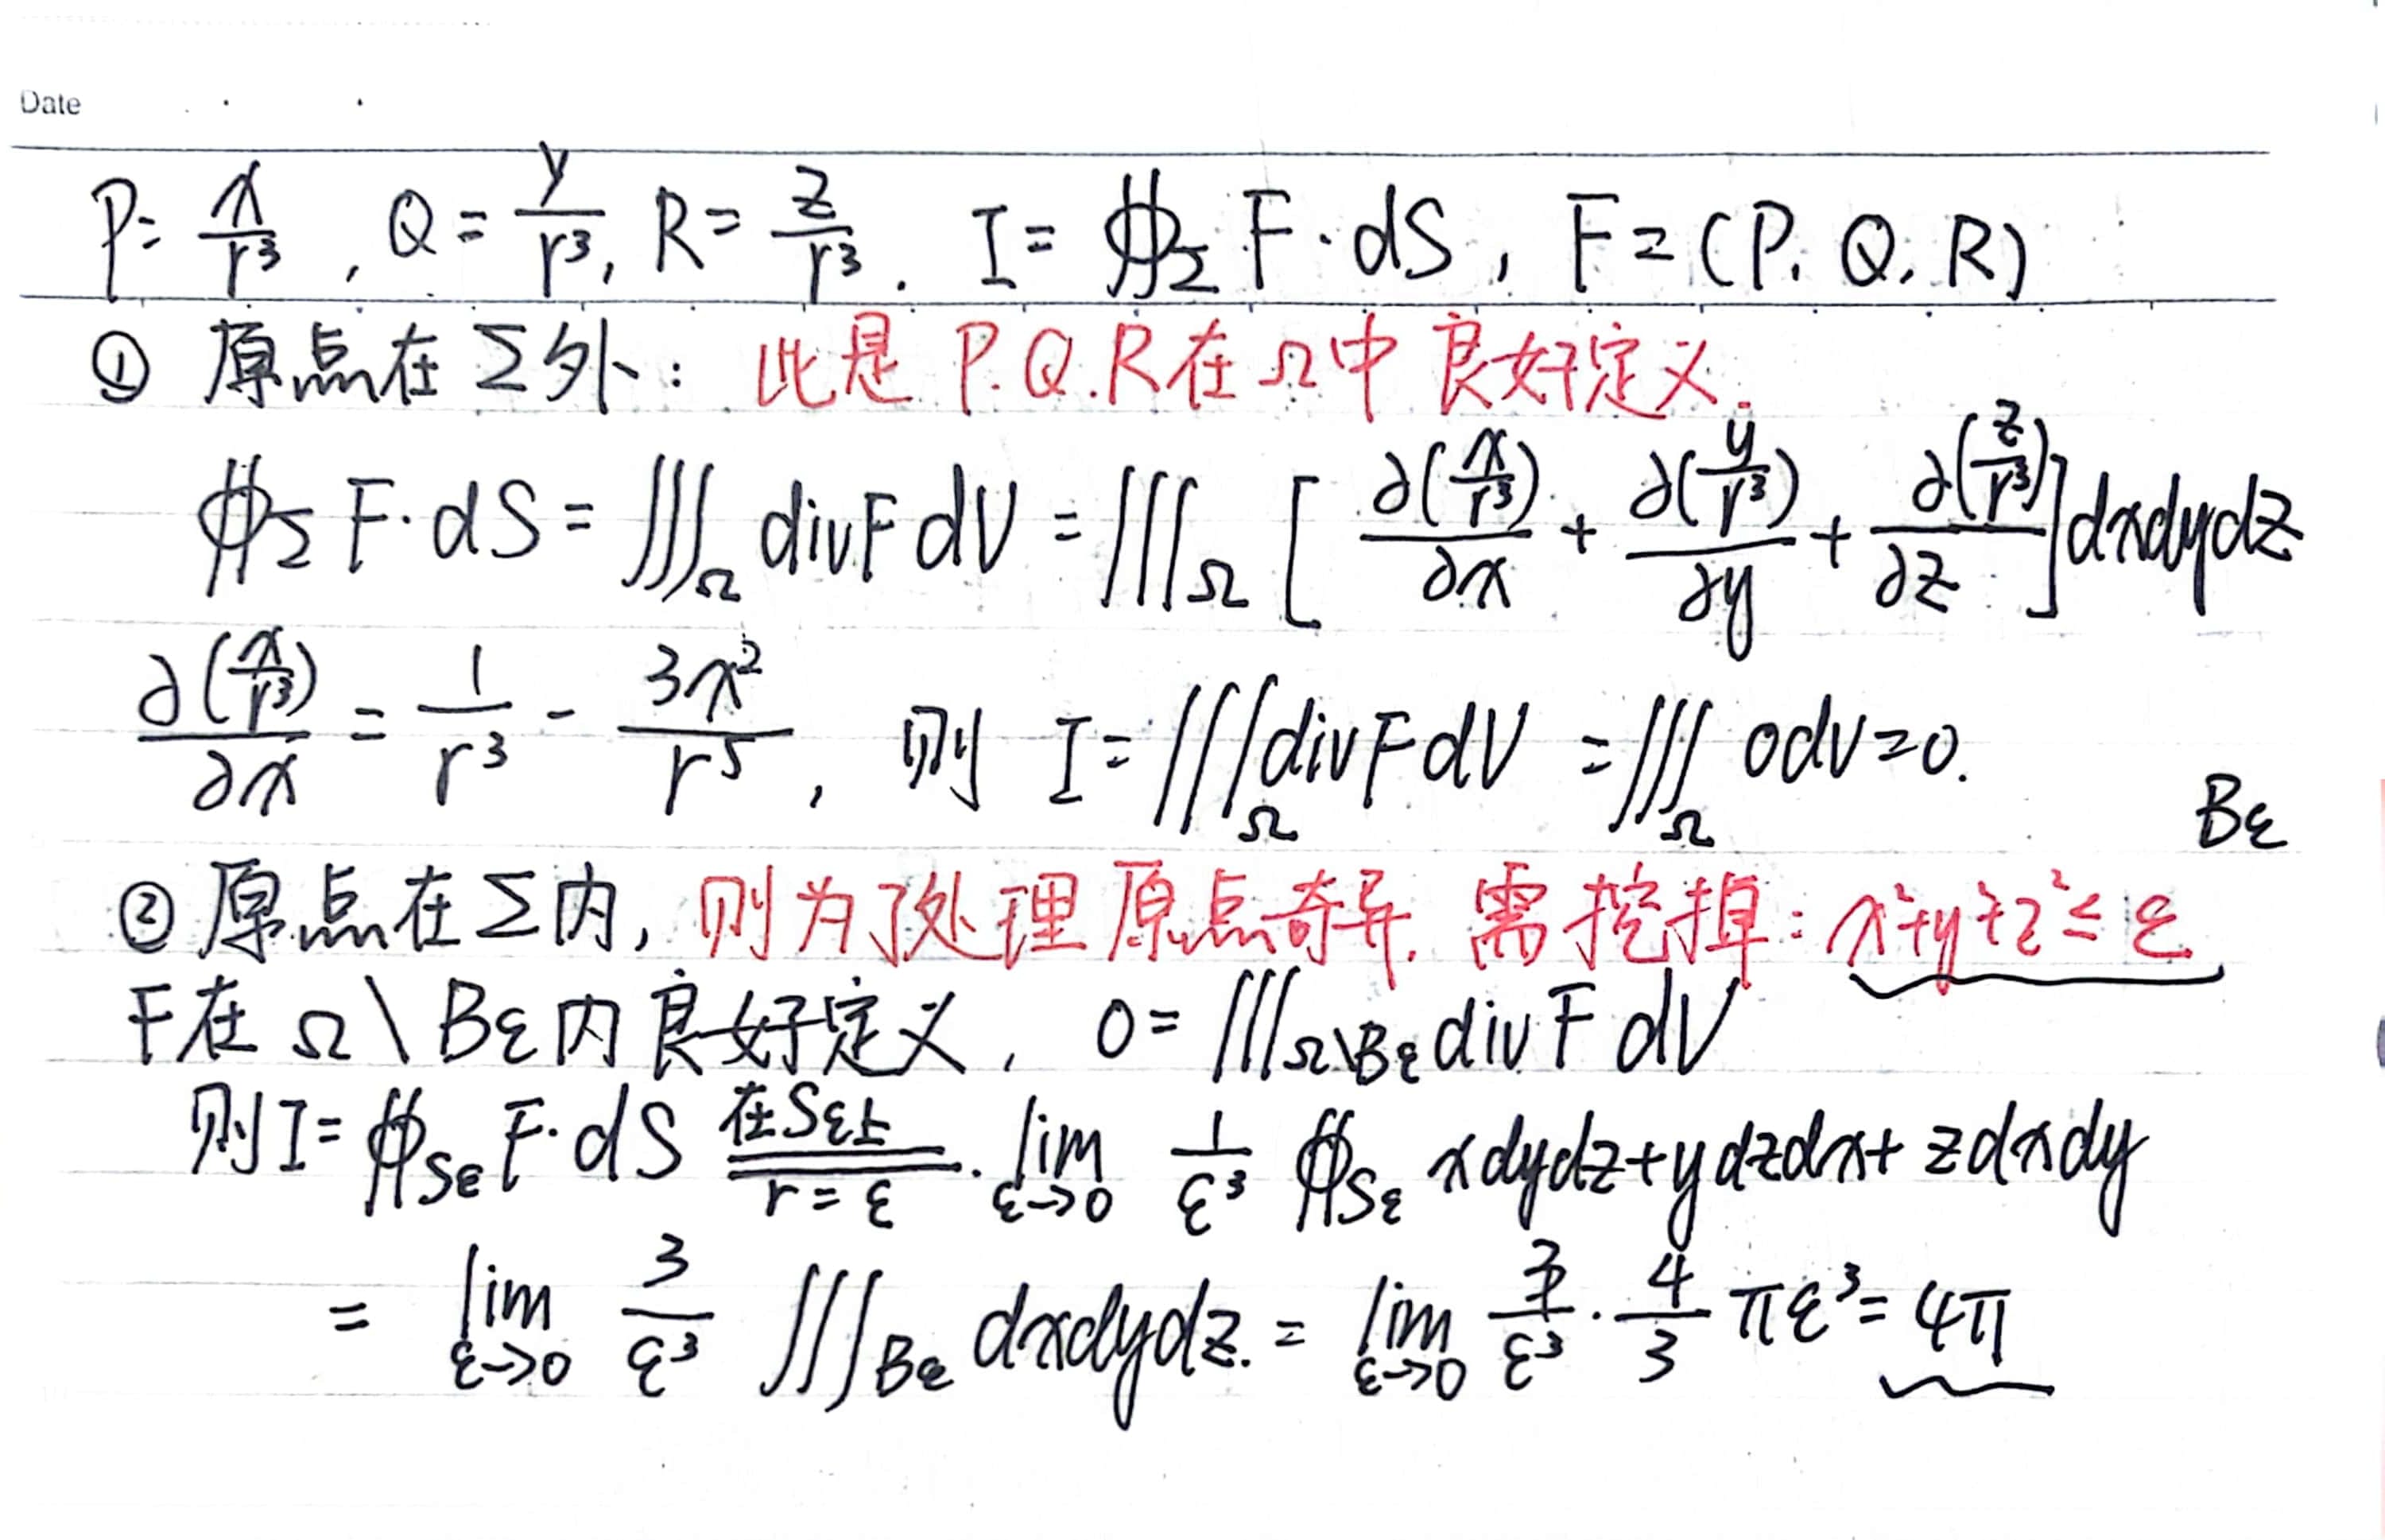 Date
P = x/r³, Q = y/r³, R = z/r³. I = ∯_Σ F·dS, F = (P, Q, R)
① 原点在Σ外: 此是 P.Q.R在Ω中良好定义.
∯_Σ F·dS = ∭_Ω divF dV = ∭_Ω [∂(x/r³)/∂x + ∂(y/r³)/∂y + ∂(z/r³)/∂z] dxdydz
∂(x/r³)/∂x = 1/r³ - 3x²/r⁵, 则 I = ∭_Ω divF dV = ∭_Ω 0dV = 0.
Bε
② 原点在Σ内, 则为了处理原点奇异, 需挖掉: x²+y²+z² ≤ ε
F在 Ω\Bε内良好定义, 0 = ∭_Ω\Bε divF dV
则I = ∯_Sε F·dS =(在Sε上 r=ε) lim_ε→0 1/ε³ ∯_Sε xdydz+ydzdx+zdxdy
= lim_ε→0 3/ε³ ∭_Bε dxdydz. = lim_ε→0 3/ε³ · 4/3 πε³ = 4π